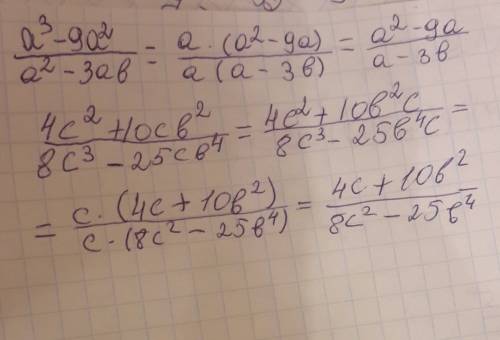 (a³-9a²)/(a²-3aв) = (a·(a²-9a))/(a(a-3в)) = (a²-9a)/(a-3в)
(4c²+10cв²)/(8c³-25cв⁴) = (4c²+10в²c)/(8c³-25в⁴c) =
= (c·(4c+10в²))/(c·(8c²-25в⁴)) = (4c+10в²)/(8c²-25в⁴)